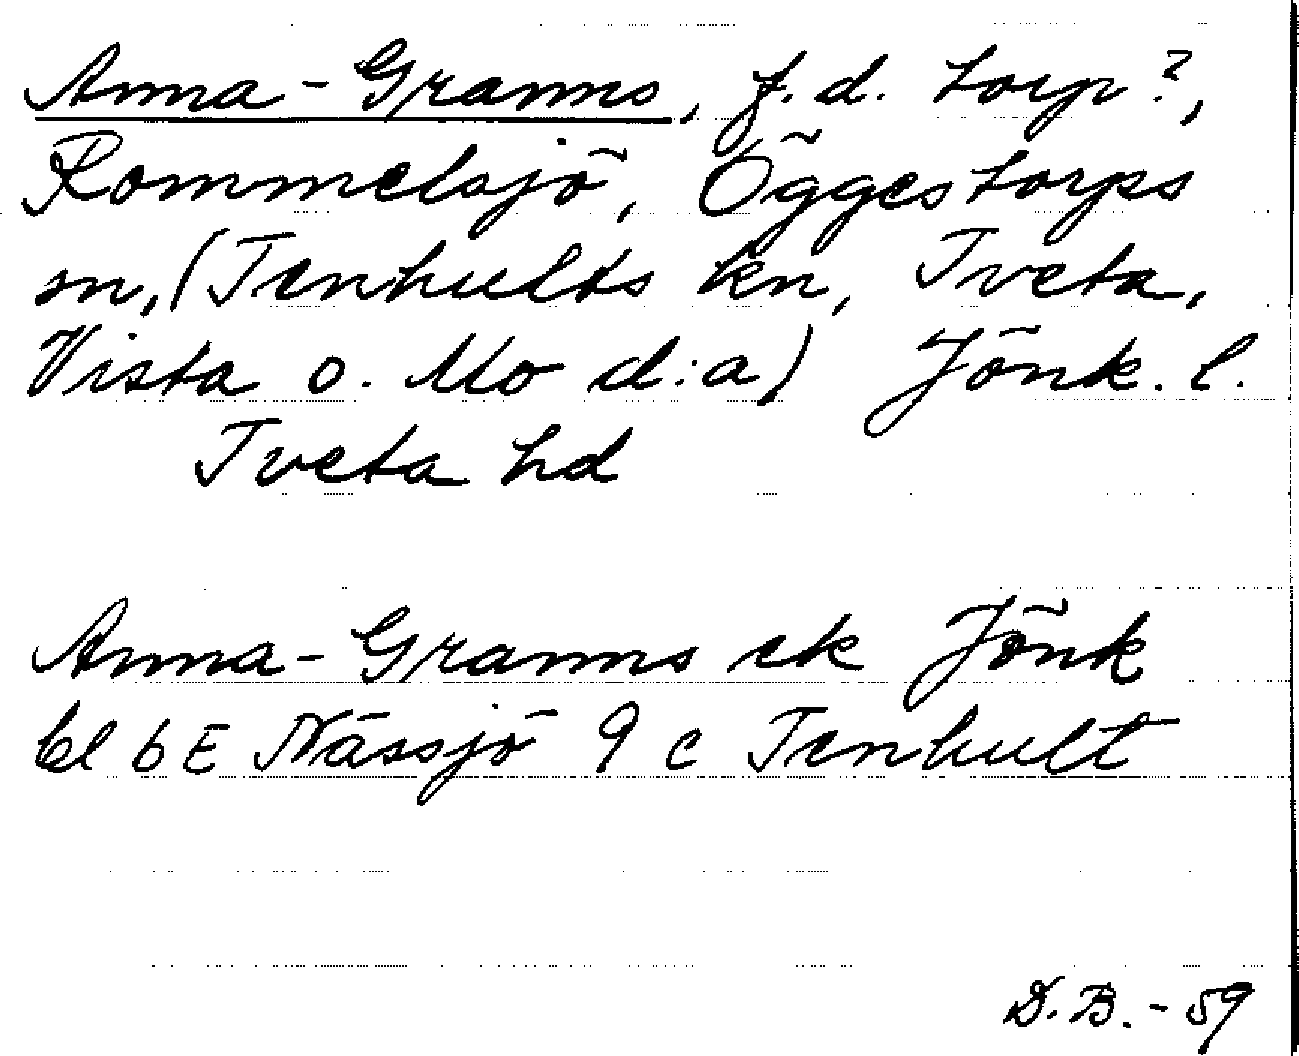 Anna-Granns, f.d. torp?,
Rommelsjö, Öggestorps
sn, (Tenhults kn, Tveta,
Vista o. Mo d:a) Jönk. l.
Tveta hd
Anna-Granns ek Jönk
bl 6E Nässjö 9 c Tenhult
D.B. - 59